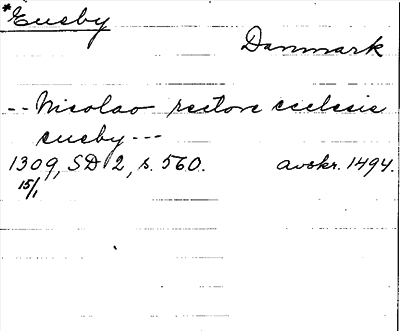 *Eueby
Danmark
-- Nicolao rectore ecclesie
eueby ---
1309, SD 2, s. 560. avskr. 1494.
15/1